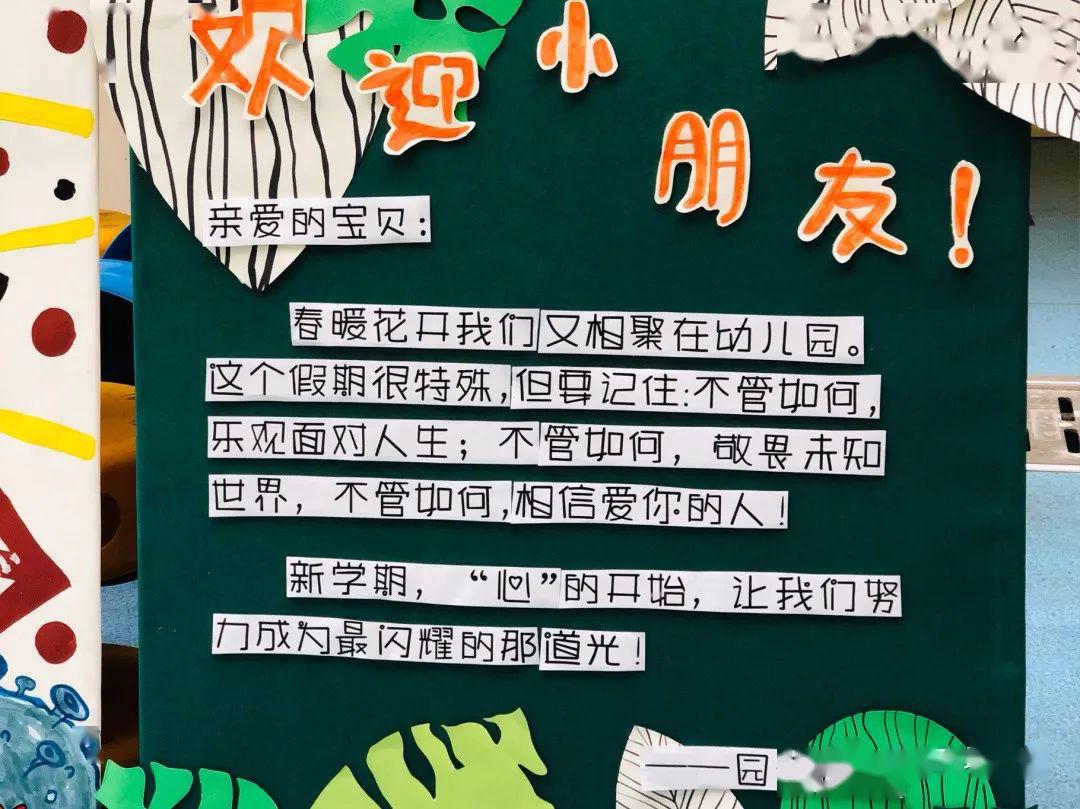 欢迎小朋友！
亲爱的宝贝：
春暖花开我们又相聚在幼儿园。
这个假期很特殊，但要记住：不管如何，
乐观面对人生；不管如何，敬畏未知
世界，不管如何，相信爱你的人！
新学期，“心”的开始，让我们努
力成为最闪耀的那道光！
——园